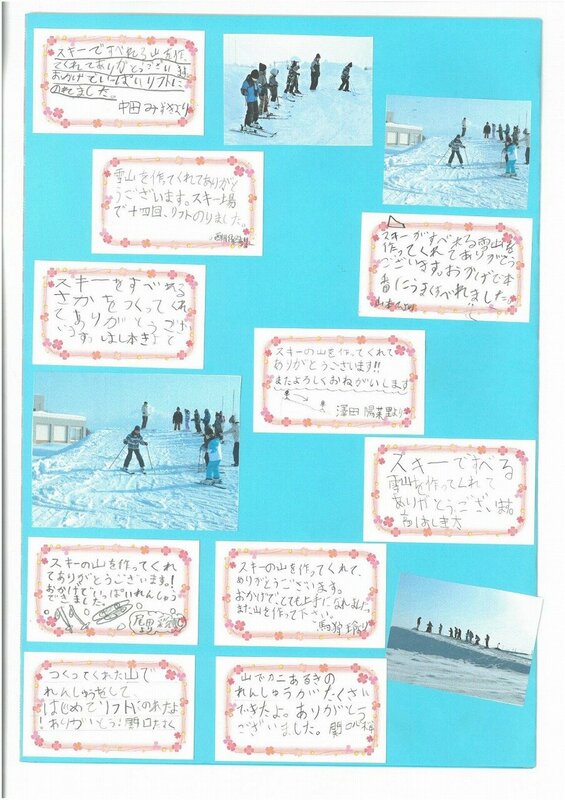 スキーですべれる山を作っ
てくれてありがとうございます。
おかげでいっぱいリフトに
のれました。
中田 みさとより
雪山を作ってくれてありがと
うございます。スキー場
で十四回、リフトのりました。
スキーがすべれる雪山を
作ってくれてありがとう
ございます。おかげで本
番にうまくすべれました。
スキーをすべれる
さかをつくってくれ
てありがとうござい
ます。
スキーの山を作ってくれて
ありがとうございます!!
またよろしくおねがいします
澤田 陽菜里より
スキーですべる
雪山を作ってくれて
ありがとうございます
スキーの山を作ってくれ
てありがとうございます!
おかげでいっぱいれんしゅう
できました。
尾田
より
スキーの山を作ってくれて、
ありがとうございます。
おかげで、とても上手になれました。
また山を作って下さい。
つくってくれた山で
れんしゅうをして、
はじめてリフトにのれたよ
!ありがとう!関口たく
山でカニあるきの
れんしゅうがたくさん
できたよ。ありがとう
ございました。関口